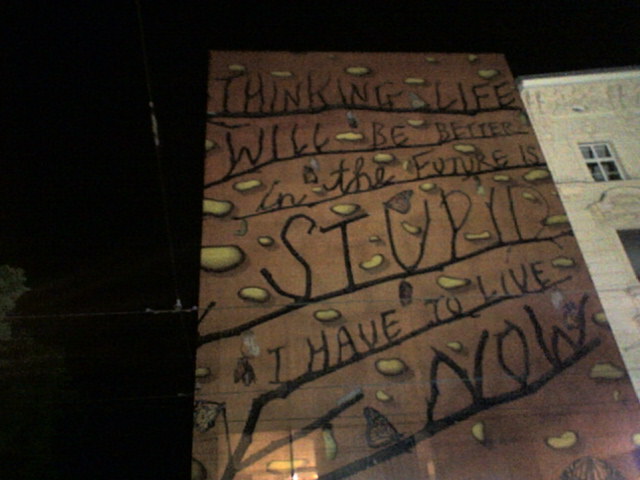 THINKING LIFE
WILL BE BETTER
in the FUTURE IS
STUPID
I HAVE TO LIVE
NOW